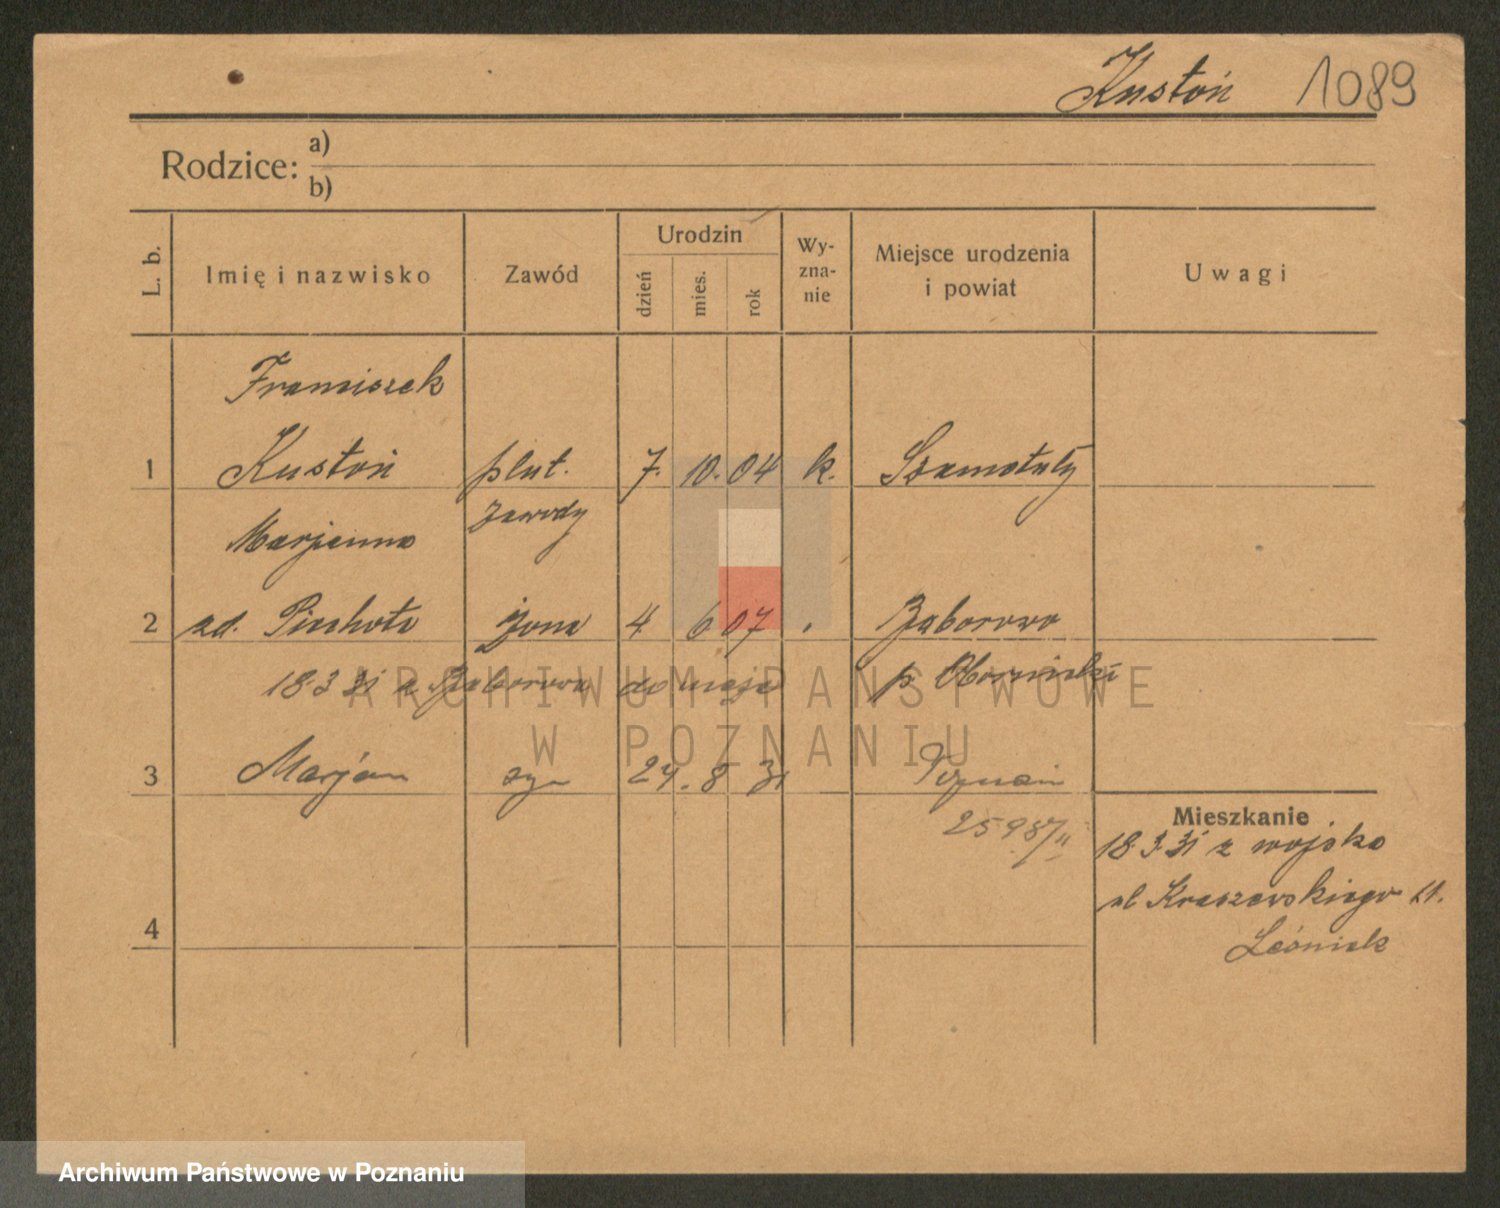 Kustoń 1089
Rodzice: a)
b)
L. b. Imię i nazwisko Zawód Urodzin dzień mies. rok Wy-zna-nie Miejsce urodzenia i powiat Uwagi
Franciszek
1 Kustoń plut. 7. 10. 04 k. Szamotuły
Marjanna zawody
2 zd. Piechota żona 4 6 07 Ząborowo
18 3 31 z Ząborowa do męża p. Obornicki
ARCHIWUM PAŃSTWOWE
W POZNANIU
3 Marjan syn 24. 8 31 Poznań
25987/II
Mieszkanie
18.3.31 z wojska
ul Kraszewskiego 11.
Leśniak
4
Archiwum Państwowe w Poznaniu